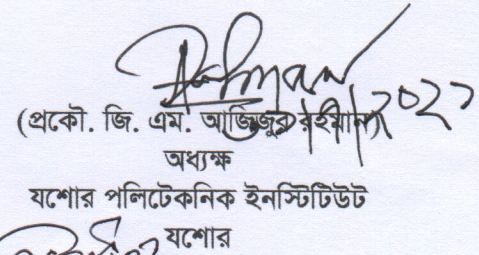 (প্রকৌ. জি. এম. আজিজুর রহমান)
অধ্যক্ষ
যশোর পলিটেকনিক ইনস্টিটিউট
যশোর